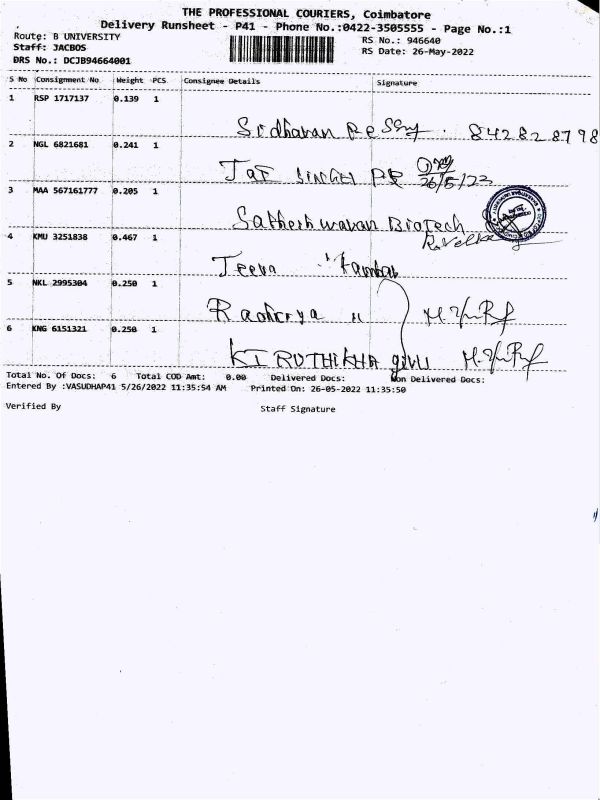 THE PROFESSIONAL COURIERS, Coimbatore
Delivery Runsheet - P41 - Phone No.:0422-3505555 - Page No.:1
Route: B UNIVERSITY
RS No.: 946640
Staff: JACBOS
RS Date: 26-May-2022
DRS No.: DCJB94664001
S No Consignment No Weight PCS Consignee Details Signature
1 RSP 1717137 0.139 1
Sridharan
2 NGL 6821681 0.241 1
SINGH 26/5/22
3 MAA 567161777 0.205 1
Biotech
4 KMU 3251838 0.467 1
Jeeva
5 NKL 2995304 0.250 1
6 KNG 6151321 0.250 1
KIRUTHIKHA
Total No. Of Docs: 6 Total COD Amt: 0.00 Delivered Docs: Non Delivered Docs:
Entered By :VASUDHAP41 5/26/2022 11:35:54 AM Printed On: 26-05-2022 11:35:50
Verified By Staff Signature